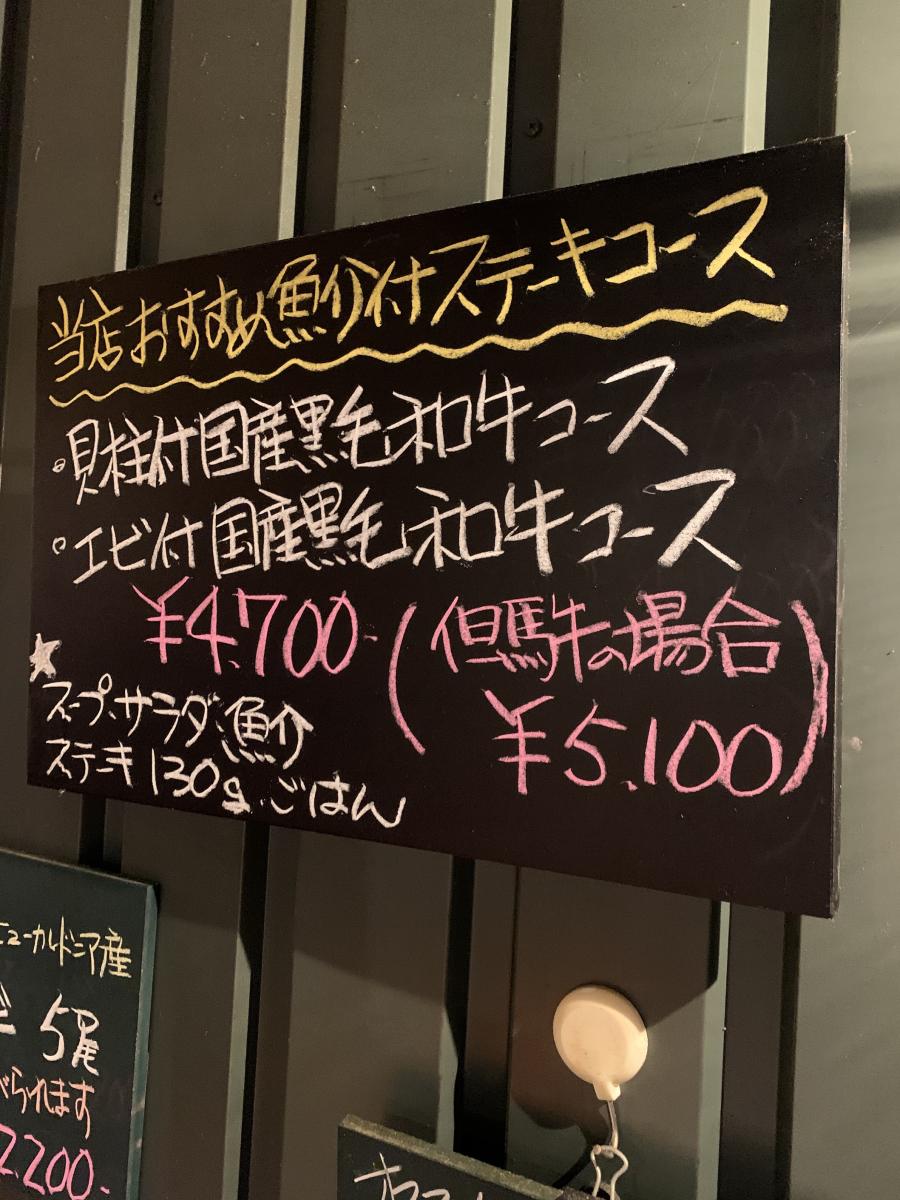 当店おすすめ魚介付ステーキコース
・貝柱付国産黒毛和牛コース
・エビ付国産黒毛和牛コース
¥4,700-
(但馬牛の場合
¥5,100)
★
スープ、サラダ、魚介
ステーキ130g、ごはん
ニューカルドニア産
5尾
べられます
2,200-